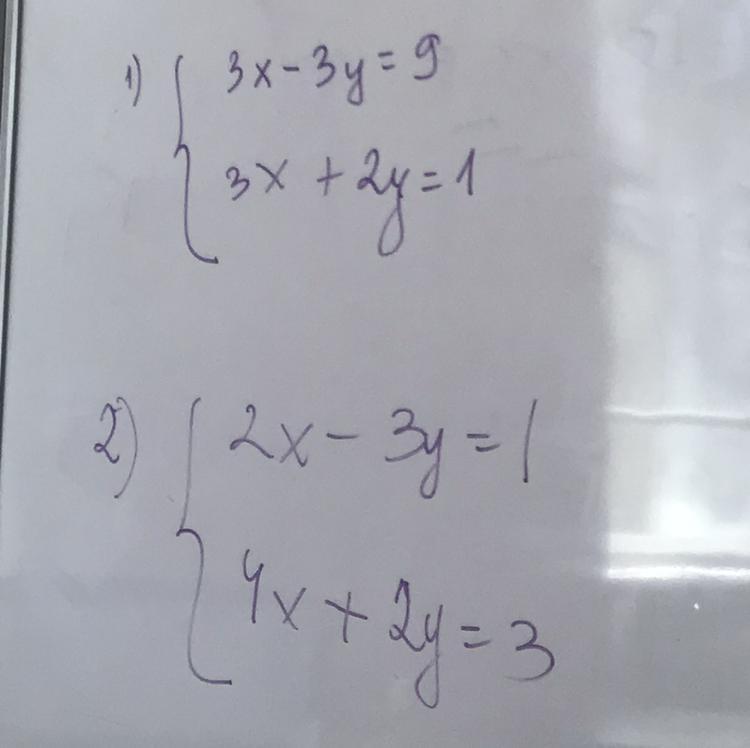 1) 3x - 3y = 9
3x + 2y = 1
2) 2x - 3y = 1
4x + 2y = 3